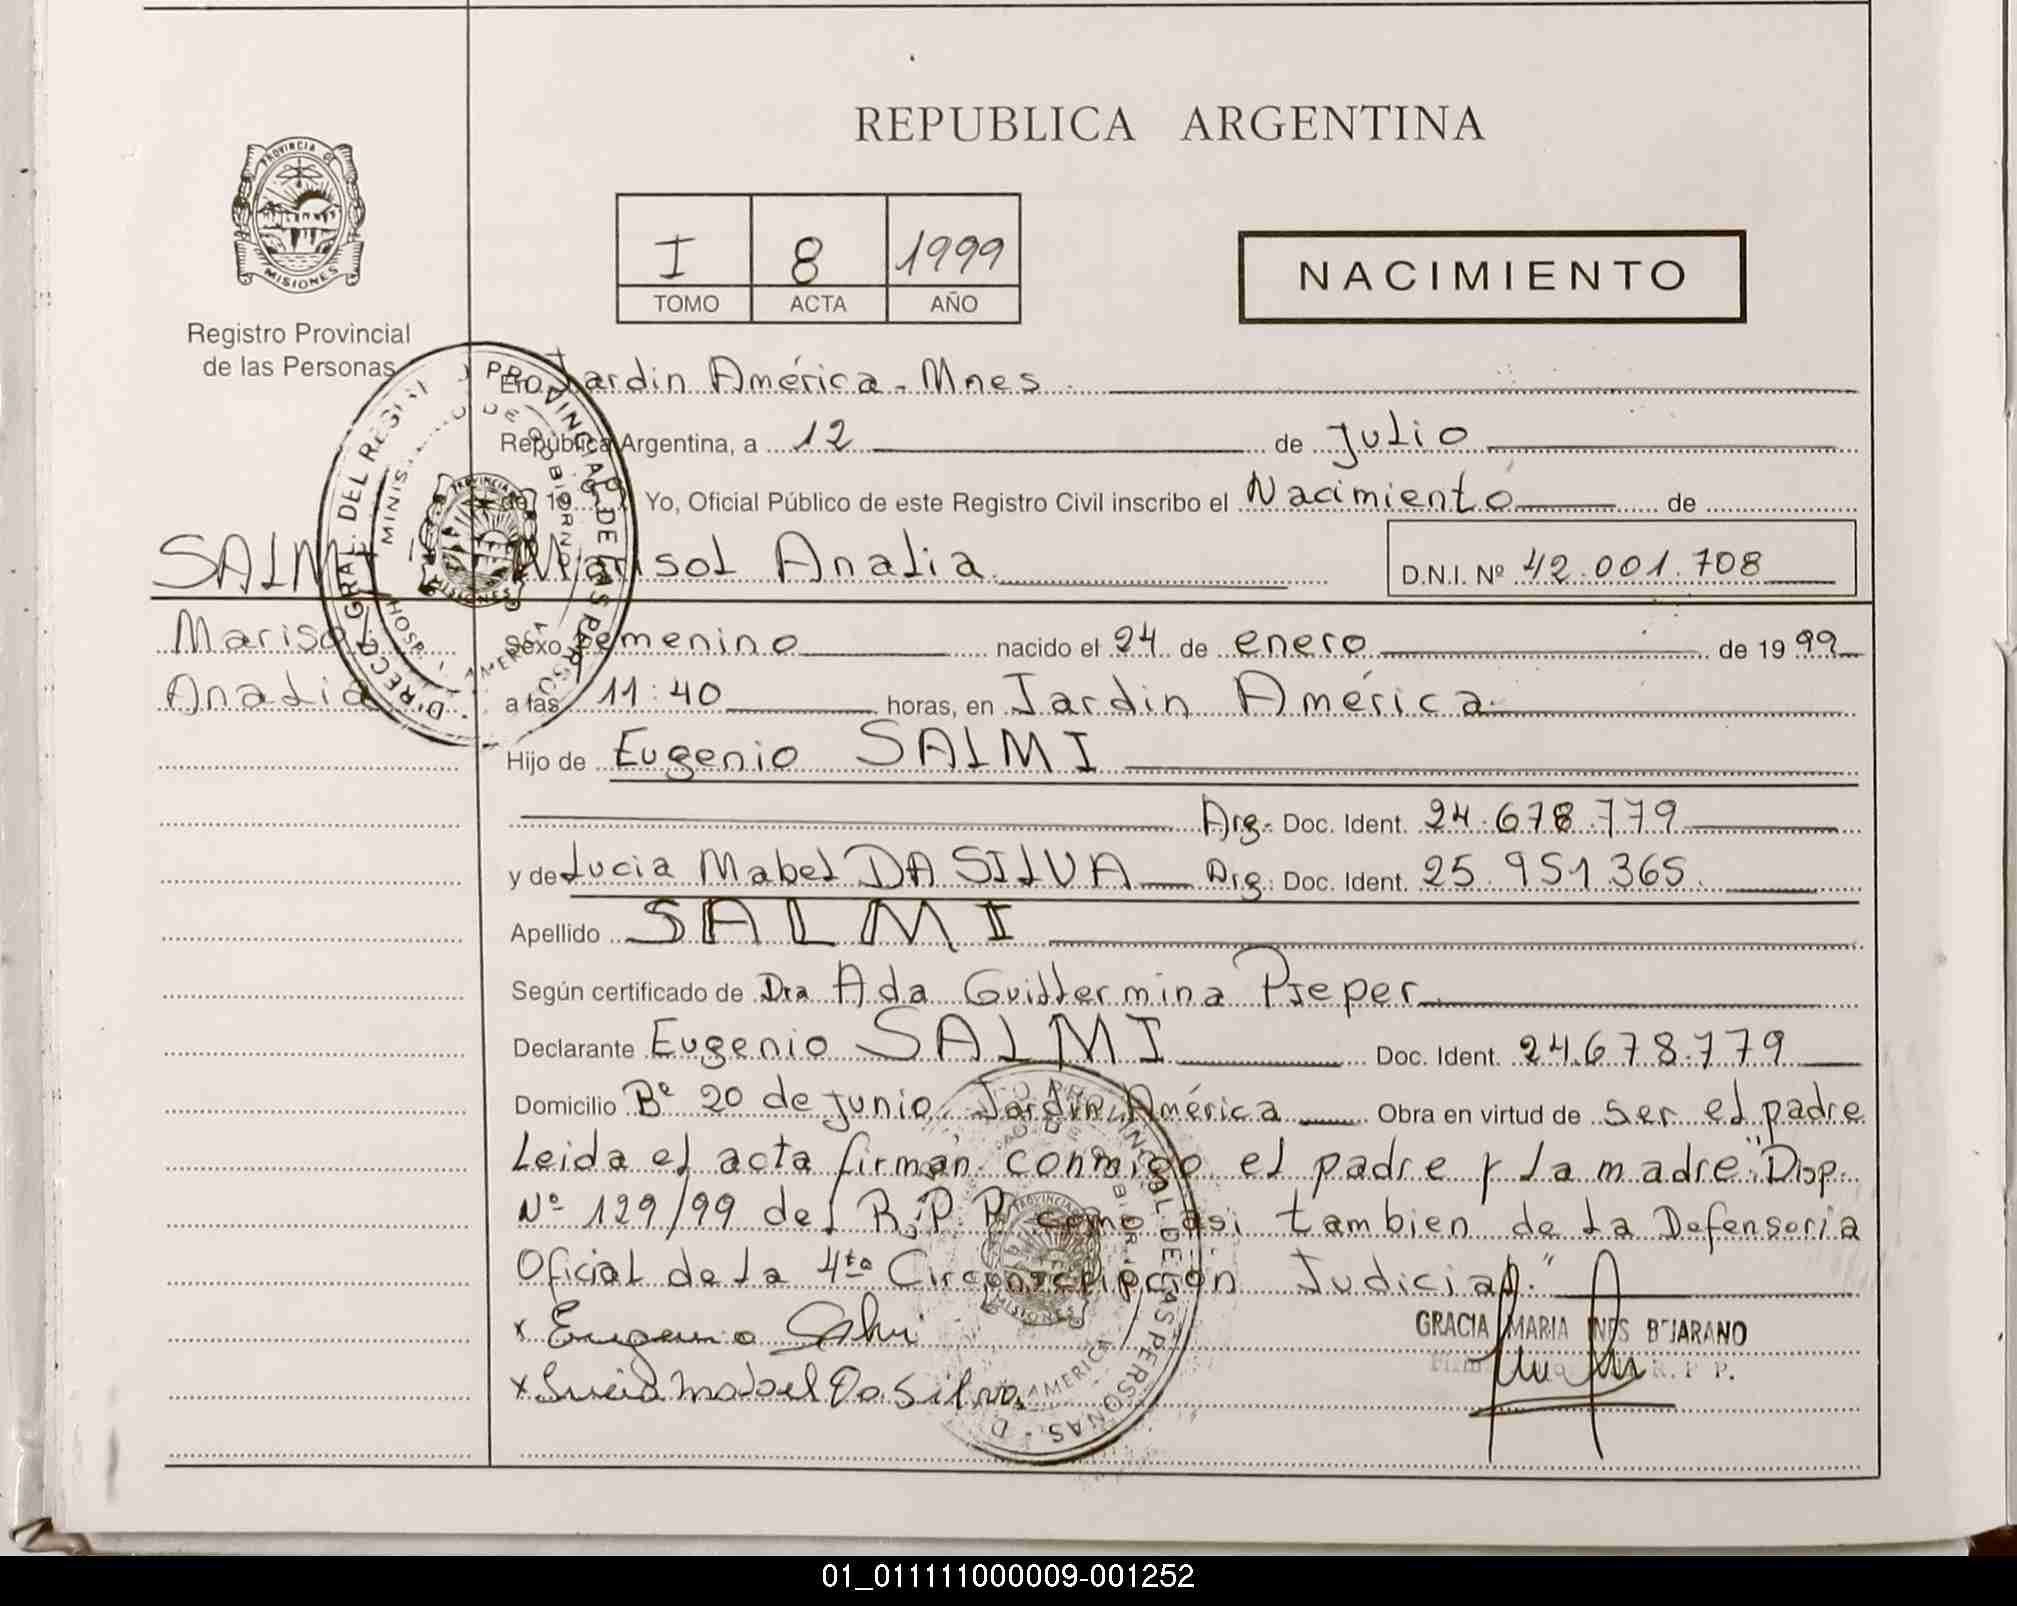 REPUBLICA ARGENTINA
PROVINCIA DE
MISIONES
Registro Provincial
de las Personas
I 8 1999
TOMO ACTA AÑO
NACIMIENTO
En Jardin América - Mnes
República Argentina, a 12 de Julio
de 19 Yo, Oficial Público de este Registro Civil inscribo el Nacimiento de
SALMI Marisol Analia D.N.I. Nº 42.001.708
Marisol Sexo Femenino nacido el 24 de enero de 1999
Analia a las 11:40 horas, en Jardin América
Hijo de Eugenio SALMI
Arg. Doc. Ident. 24.678.779
y de Lucia Mabel DA SILVA Arg. Doc. Ident. 25.951.365.
Apellido SALMI
Según certificado de Dra Ada Guillermina Pieper
Declarante Eugenio SALMI Doc. Ident. 24.678.779
Domicilio Bº 20 de junio, Jardin América Obra en virtud de ser el padre
Leida el acta firman conmigo el padre y la madre "Disp.
Nº 129/99 del R.P.P. como asi tambien de la Defensoria
Oficial de la 4ta Circunscripción Judicial."
x Eugenio Salmi
GRACIA MARIA INES BEJARANO
R. P. P.
x Lucia Mabel Da Silva
01_011111000009-001252